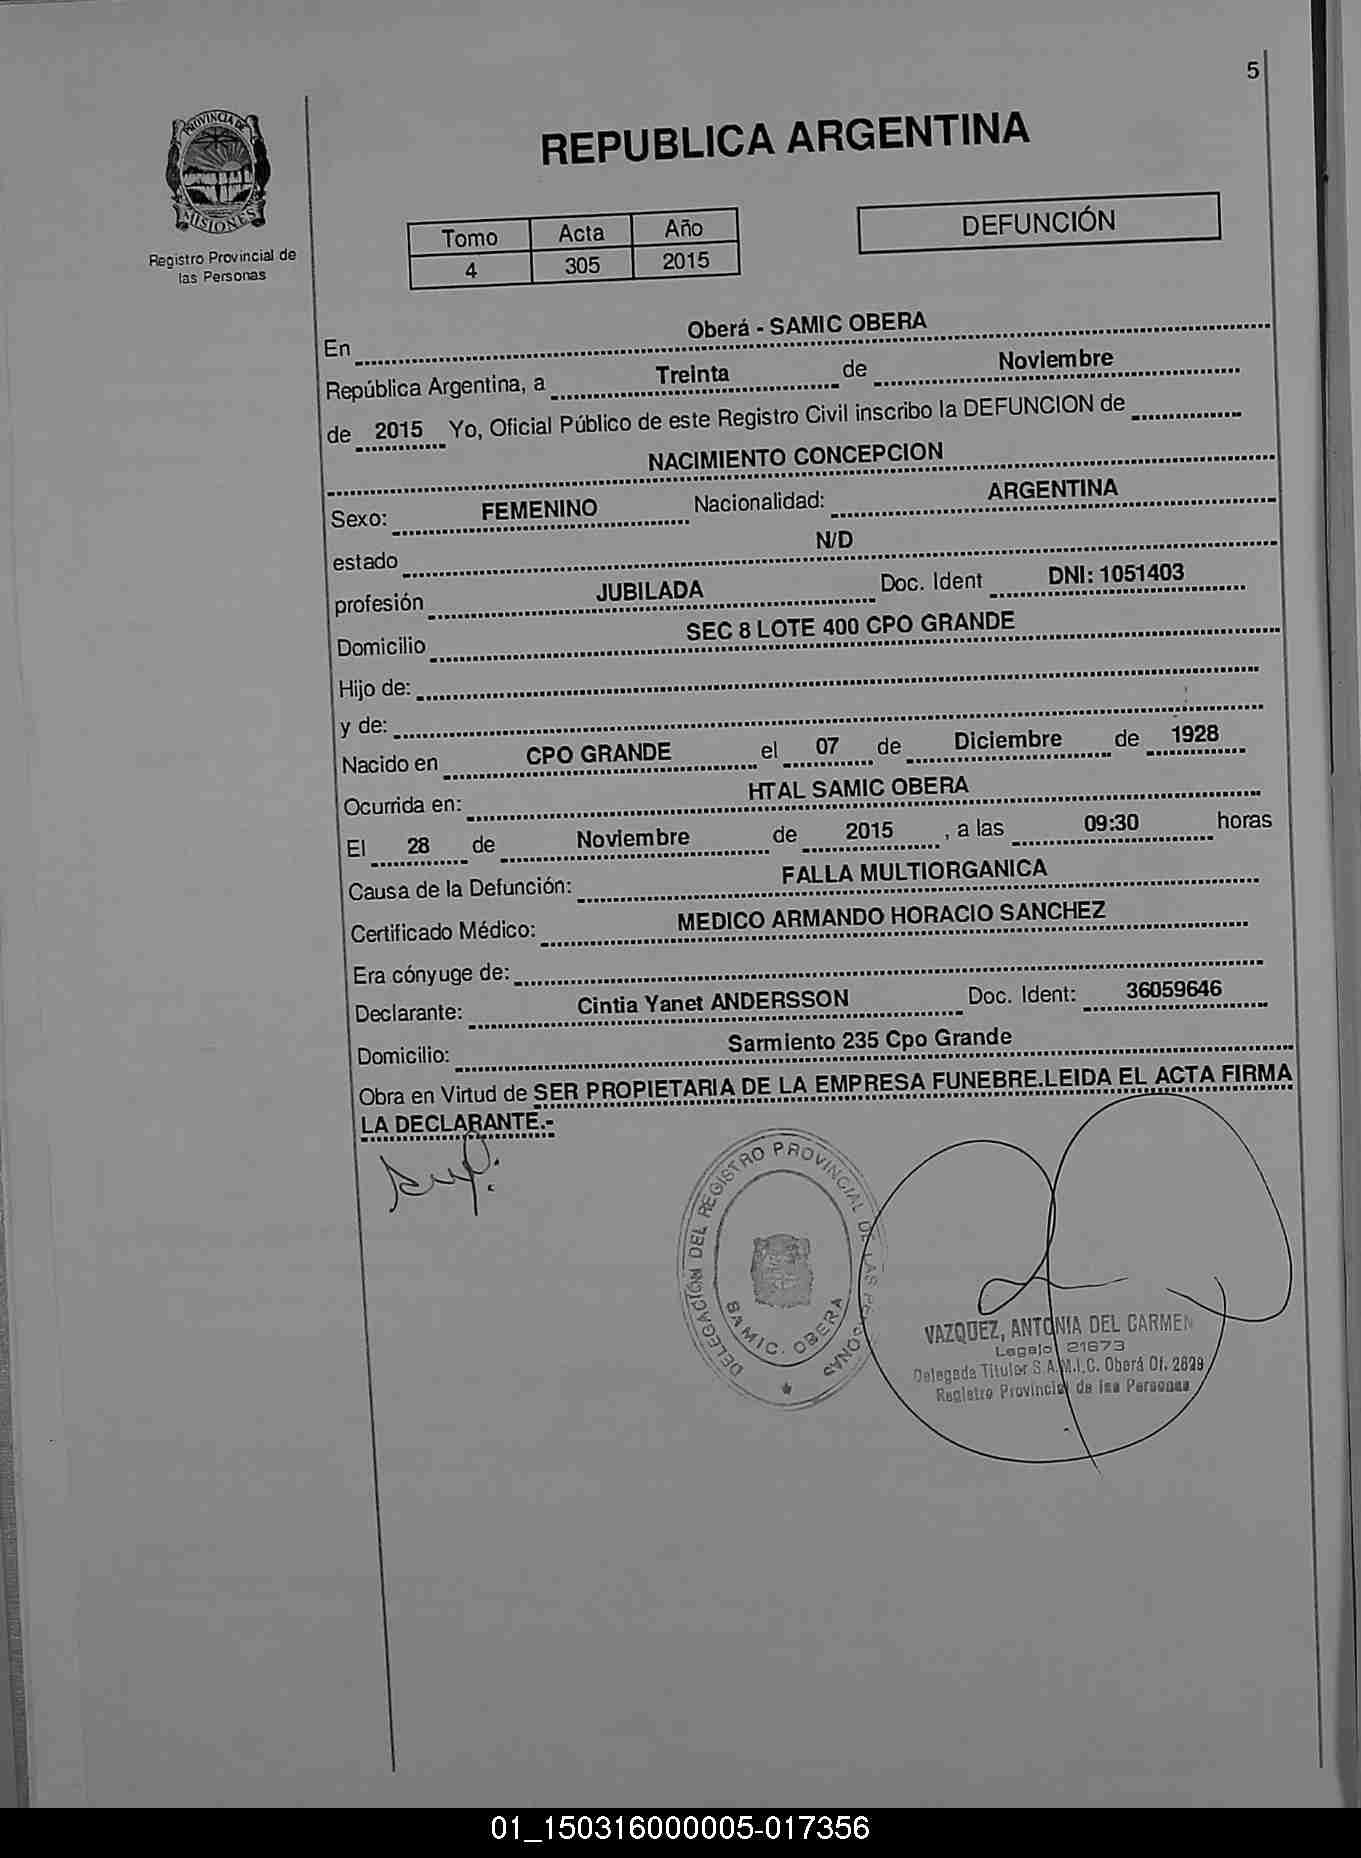 5
PROVINCIA DE
MISIONES
Registro Provincial de
las Personas
REPUBLICA ARGENTINA
Tomo Acta Año
4 305 2015
DEFUNCIÓN
En Oberá - SAMIC OBERA
República Argentina, a Treinta de Noviembre
de 2015 Yo, Oficial Público de este Registro Civil inscribo la DEFUNCION de
NACIMIENTO CONCEPCION
Sexo: FEMENINO Nacionalidad: ARGENTINA
estado N/D
profesión JUBILADA Doc. Ident DNI: 1051403
Domicilio SEC 8 LOTE 400 CPO GRANDE
Hijo de:
y de:
Nacido en CPO GRANDE el 07 de Diciembre de 1928
Ocurrida en: HTAL SAMIC OBERA
El 28 de Noviembre de 2015 , a las 09:30 horas
Causa de la Defunción: FALLA MULTIORGANICA
Certificado Médico: MEDICO ARMANDO HORACIO SANCHEZ
Era cónyuge de:
Declarante: Cintia Yanet ANDERSSON Doc. Ident: 36059646
Domicilio: Sarmiento 235 Cpo Grande
Obra en Virtud de SER PROPIETARIA DE LA EMPRESA FUNEBRE.LEIDA EL ACTA FIRMA
LA DECLARANTE.-
DELEGACIÓN DEL REGISTRO PROVINCIAL DE LAS PERSONAS
SAMIC. OBERA
VAZQUEZ, ANTONIA DEL CARMEN
Legajo 21673
Delegada Titular S.A.M.I.C. Oberá Of. 2829
Registro Provincial de las Personas
01_150316000005-017356